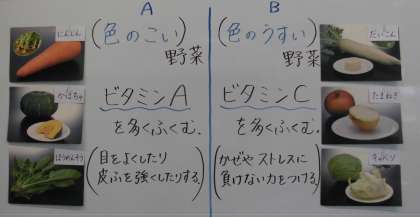 A
(色のこい)
野菜
ビタミンA
を多くふくむ.
(目をよくしたり
皮ふを強くしたりする.)
にんじん
かぼちゃ
ほうれんそう
B
(色のうすい)
野菜
ビタミンC
を多くふくむ.
(かぜやストレスに
負けない力をつける.)
だいこん
たまねぎ
キャベツ